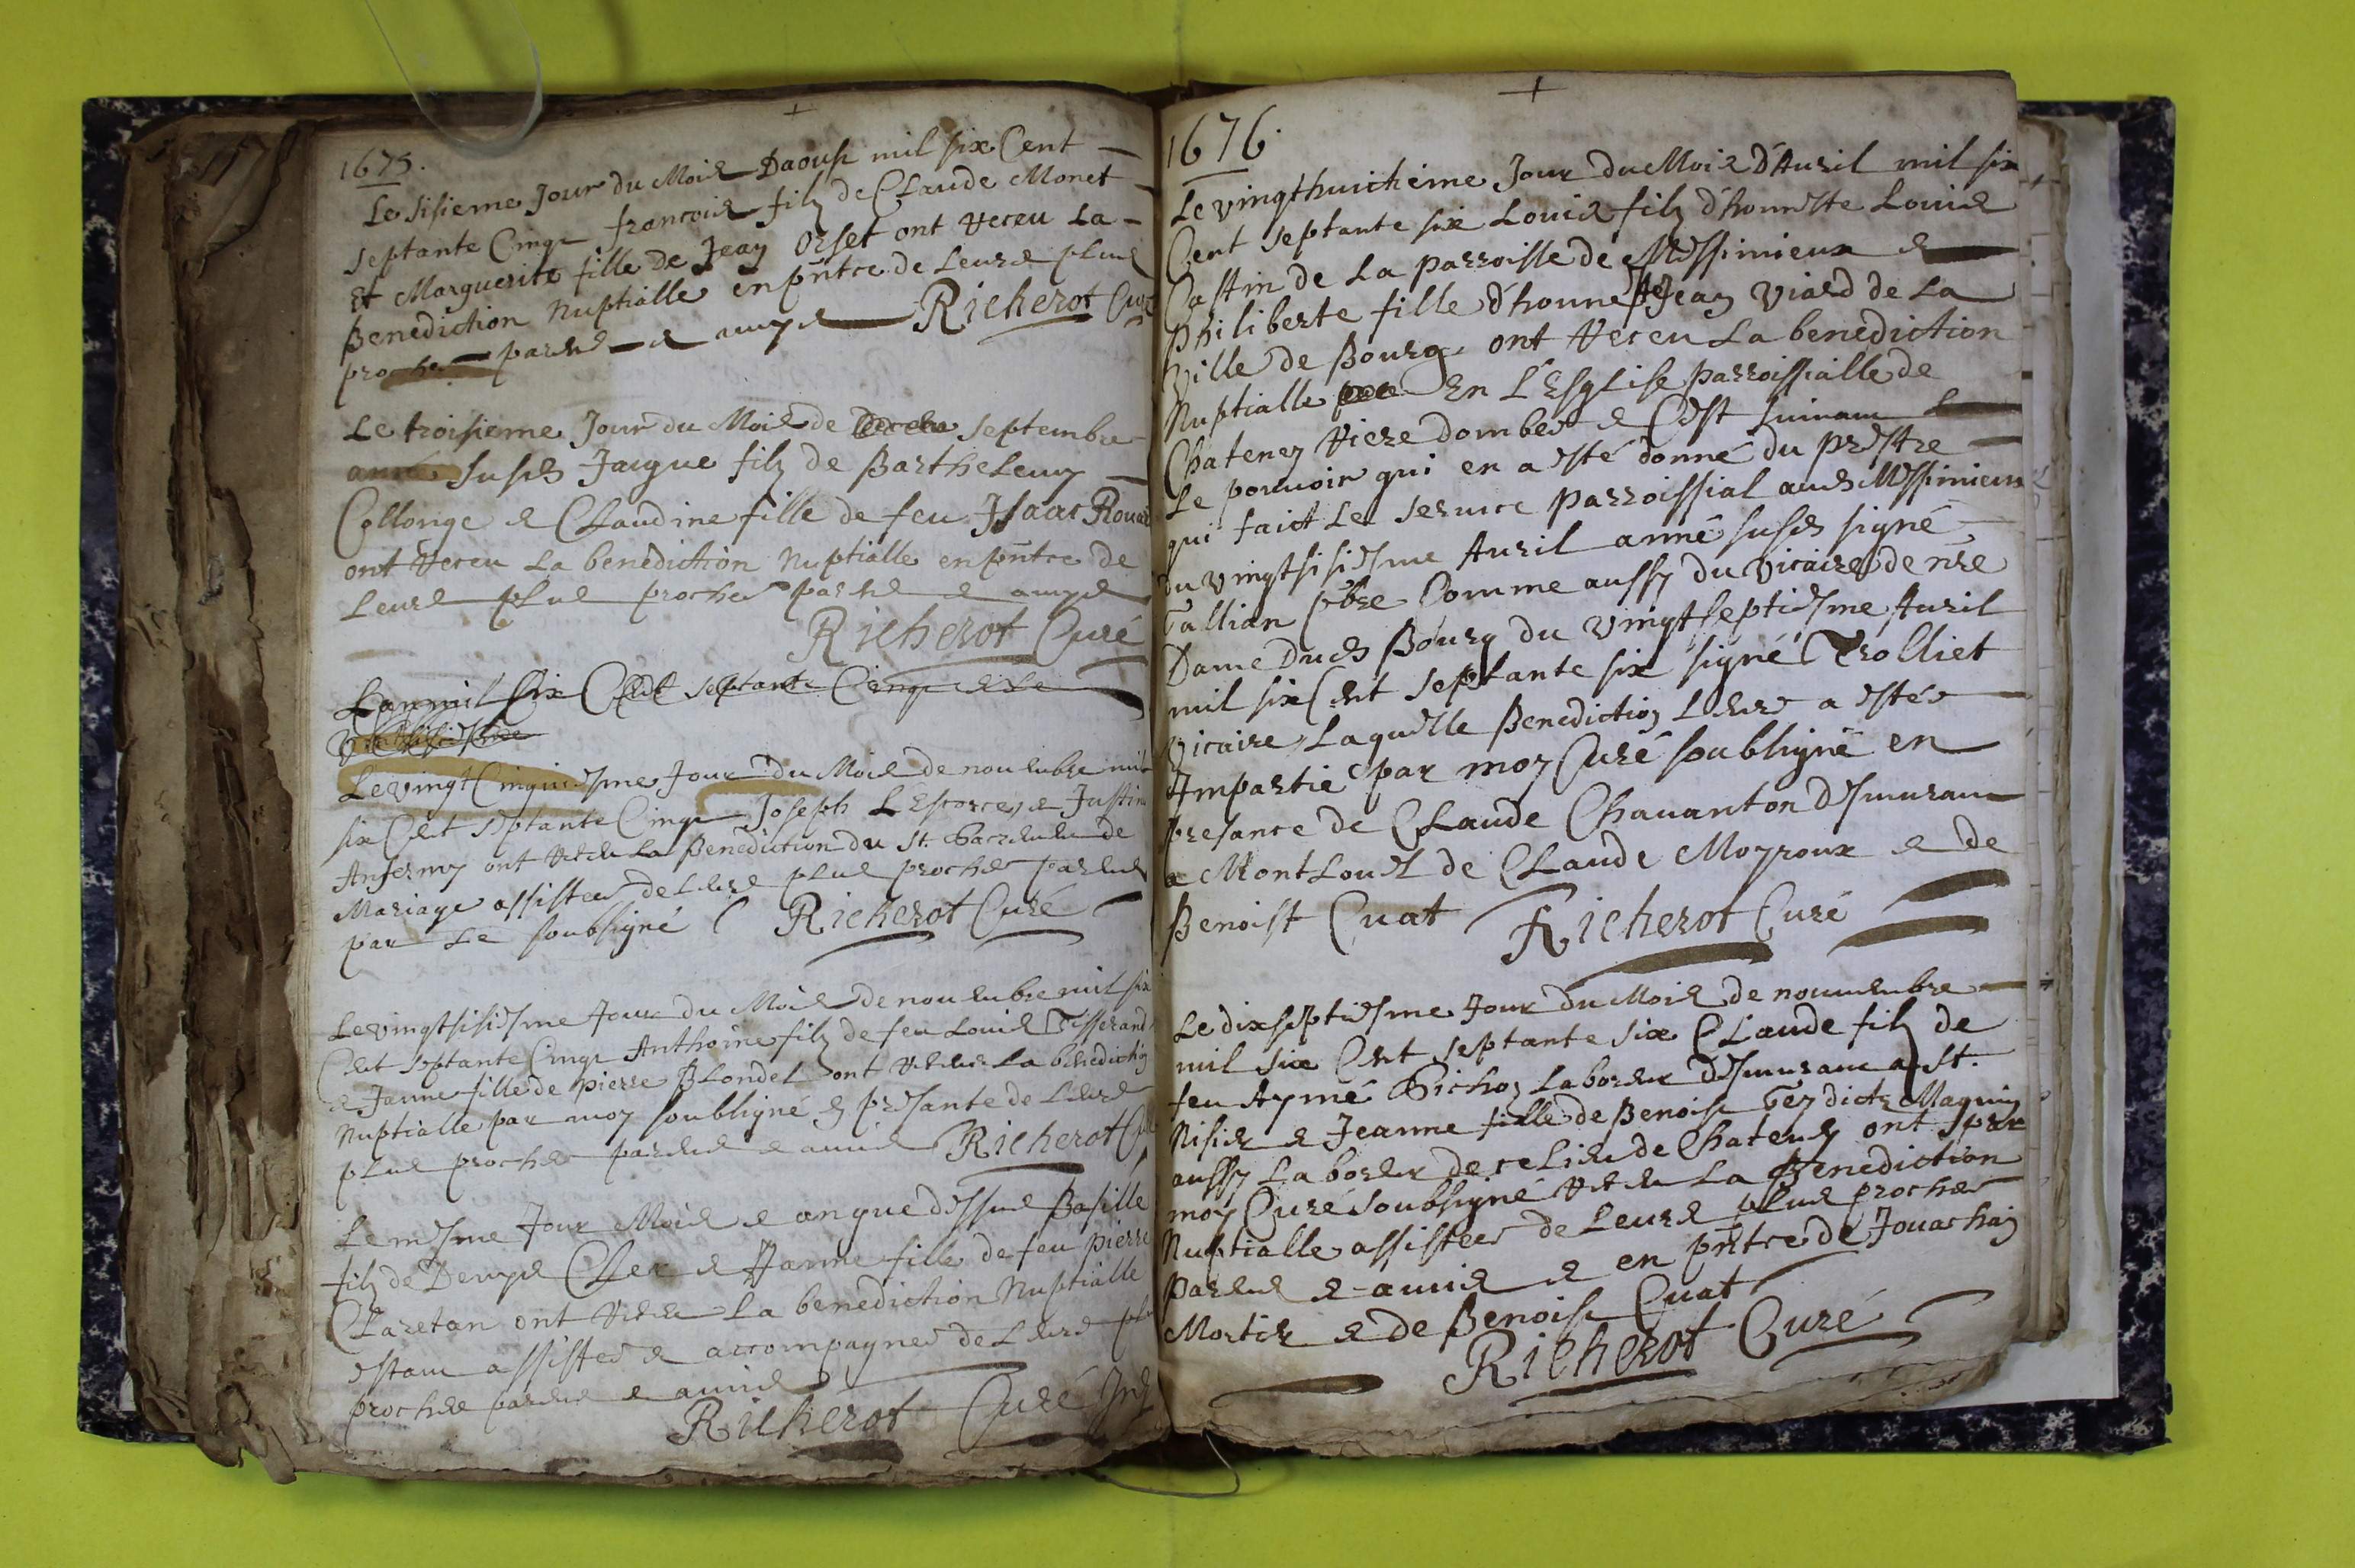 1675.
Le sisieme Jour du Mois Daoust mil six Cent
septante Cinqz francois filz de Claude Monet
Et Marguerite fille de Jean Orset ont Receu La
Benediction Nuptialle en pntce de Leurs plus
proches parens & amys Richerot Curé
Le troisieme Jour du Mois de septembre
anné susds Jacque filz de Barthelemy
Collonge & Claudine fille de feu Isaac
ont Receu La benediction Nuptialle en pntce de
Leurs plus proches parens & amys
Richerot Curé
L'an mil six Cent septante Cinqz & Le
Le vingt Cinquiesme Jour du Mois de nouembre mil
six Cent septante Cinqz Joseph L'Escorce, & Justine
Anfermy ont Receu La Benediction du St. Sacrement de
Mariage assistes de Leurs plus proches parens
par Le soubsigné Richerot Curé
Le vingtsisiesme Jour du Mois de nouembre mil six
Cent septante Cinqz Anthoine filz de feu Louis Tisserand
& Janne fille de pierre Blondel ont Receu La benediction
Nuptialle par moy soubsigné en presance de Leurs
plus proches parens & amis Richerot
Le mesme Jour Mois & an que dessus Basille
filz de Denys Cler & Janne fille de feu pierre
Claretan ont Receu La benediction Nuptialle
estant assistes & accompagnes de Leurs plus
proches parens & amis
Richerot Curé
1676.
Le vingthuictieme Jour du Mois d'Auril mil six
Cent septante six Louis filz d'honneste Louis
Castin de La parroisse de Messimieux &
philiberte fille d'honneste Jean Viard de La
Ville de Bourg ont Receu La benediction
Nuptialle En L'Esglise parroissialle de
Chateney Viere dombes & C'est suiuant
Le pouuoir qui en a esté donné du prestre
qui faict Le seruice parroissial auds Messimieux
du vingtsisiesme Auril anné susds signé
Gallian pbre Comme aussy du vicaire de nre
Dame Duds Bourg du vingtseptiesme Auril
mil six Cent septante six signé Trolliet
vicaire, Laquelle Benediction Leurs a estée
Impartie par moy Curé soubsigné en
presance de Claude Chauanton demurant
a Montlouel de Claude Moyroux & de
Benoist Cuat Richerot Curé
Le dixseptiesme Jour du Mois de nouuembre
mil six Cent septante six Claude filz de
feu Aymé Bichon Laboreur demurant a St.
Nisier & Jeanne fille de Benoist Gey dict Magnin
aussy Laboreur de ce Lieu de Chateney ont par
moy Curé soubsigné Receu La Benediction
Nuptialle assistees de Leurs plus proches
parens & amis & en pntce de Jouachin
Mortier & de Benoist Cuat
Richerot Curé